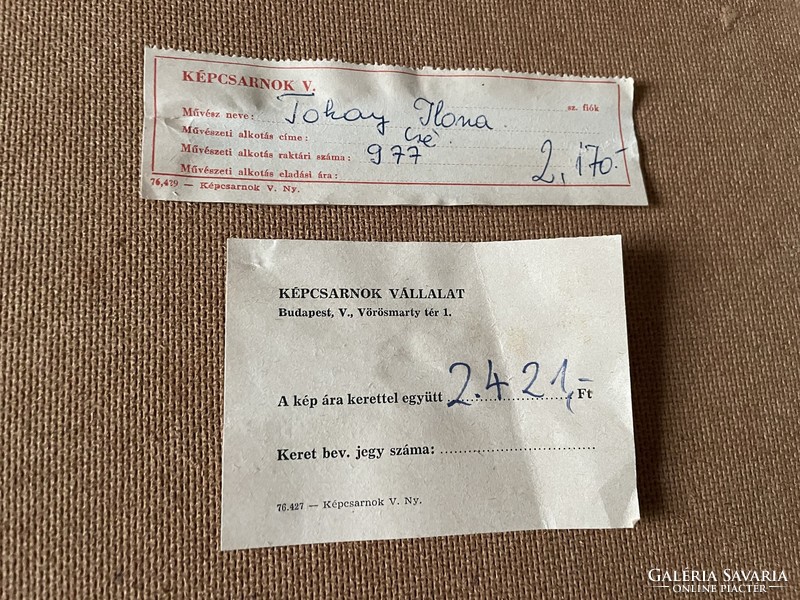 KÉPCSARNOK V.
Művész neve: Tokay Ilona sz. fiók
Művészeti alkotás címe:
Művészeti alkotás raktári száma: 977
Művészeti alkotás eladási ára: 2,170.-
76,479 — Képcsarnok V. Ny.
KÉPCSARNOK VÁLLALAT
Budapest, V., Vörösmarty tér 1.
A kép ára kerettel együtt 2.421,- Ft
Keret bev. jegy száma:
76.427 — Képcsarnok V. Ny.
GALÉRIA SAVARIA
ONLINE PIACTÉR